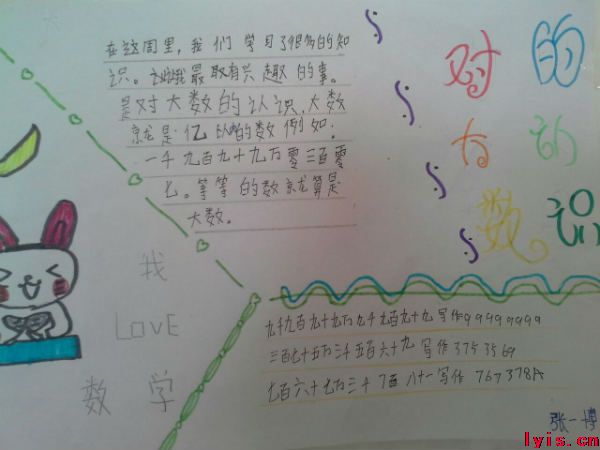 在这周里，我们学习了很多的知
识。让我最取有兴趣的事。
是对大数的认识，大数
就是亿以内的数例如：
一千九百九十九万零三百零
七。等等的数就算是
大数。
对大数
的认识
我
LOVE
数学
九千九百九十九万九千九百九十九写作99999999
三百七十五万三千五百六十九写作3753569
七百六十七万三千七百八十一写作
张一博
lyis.cn